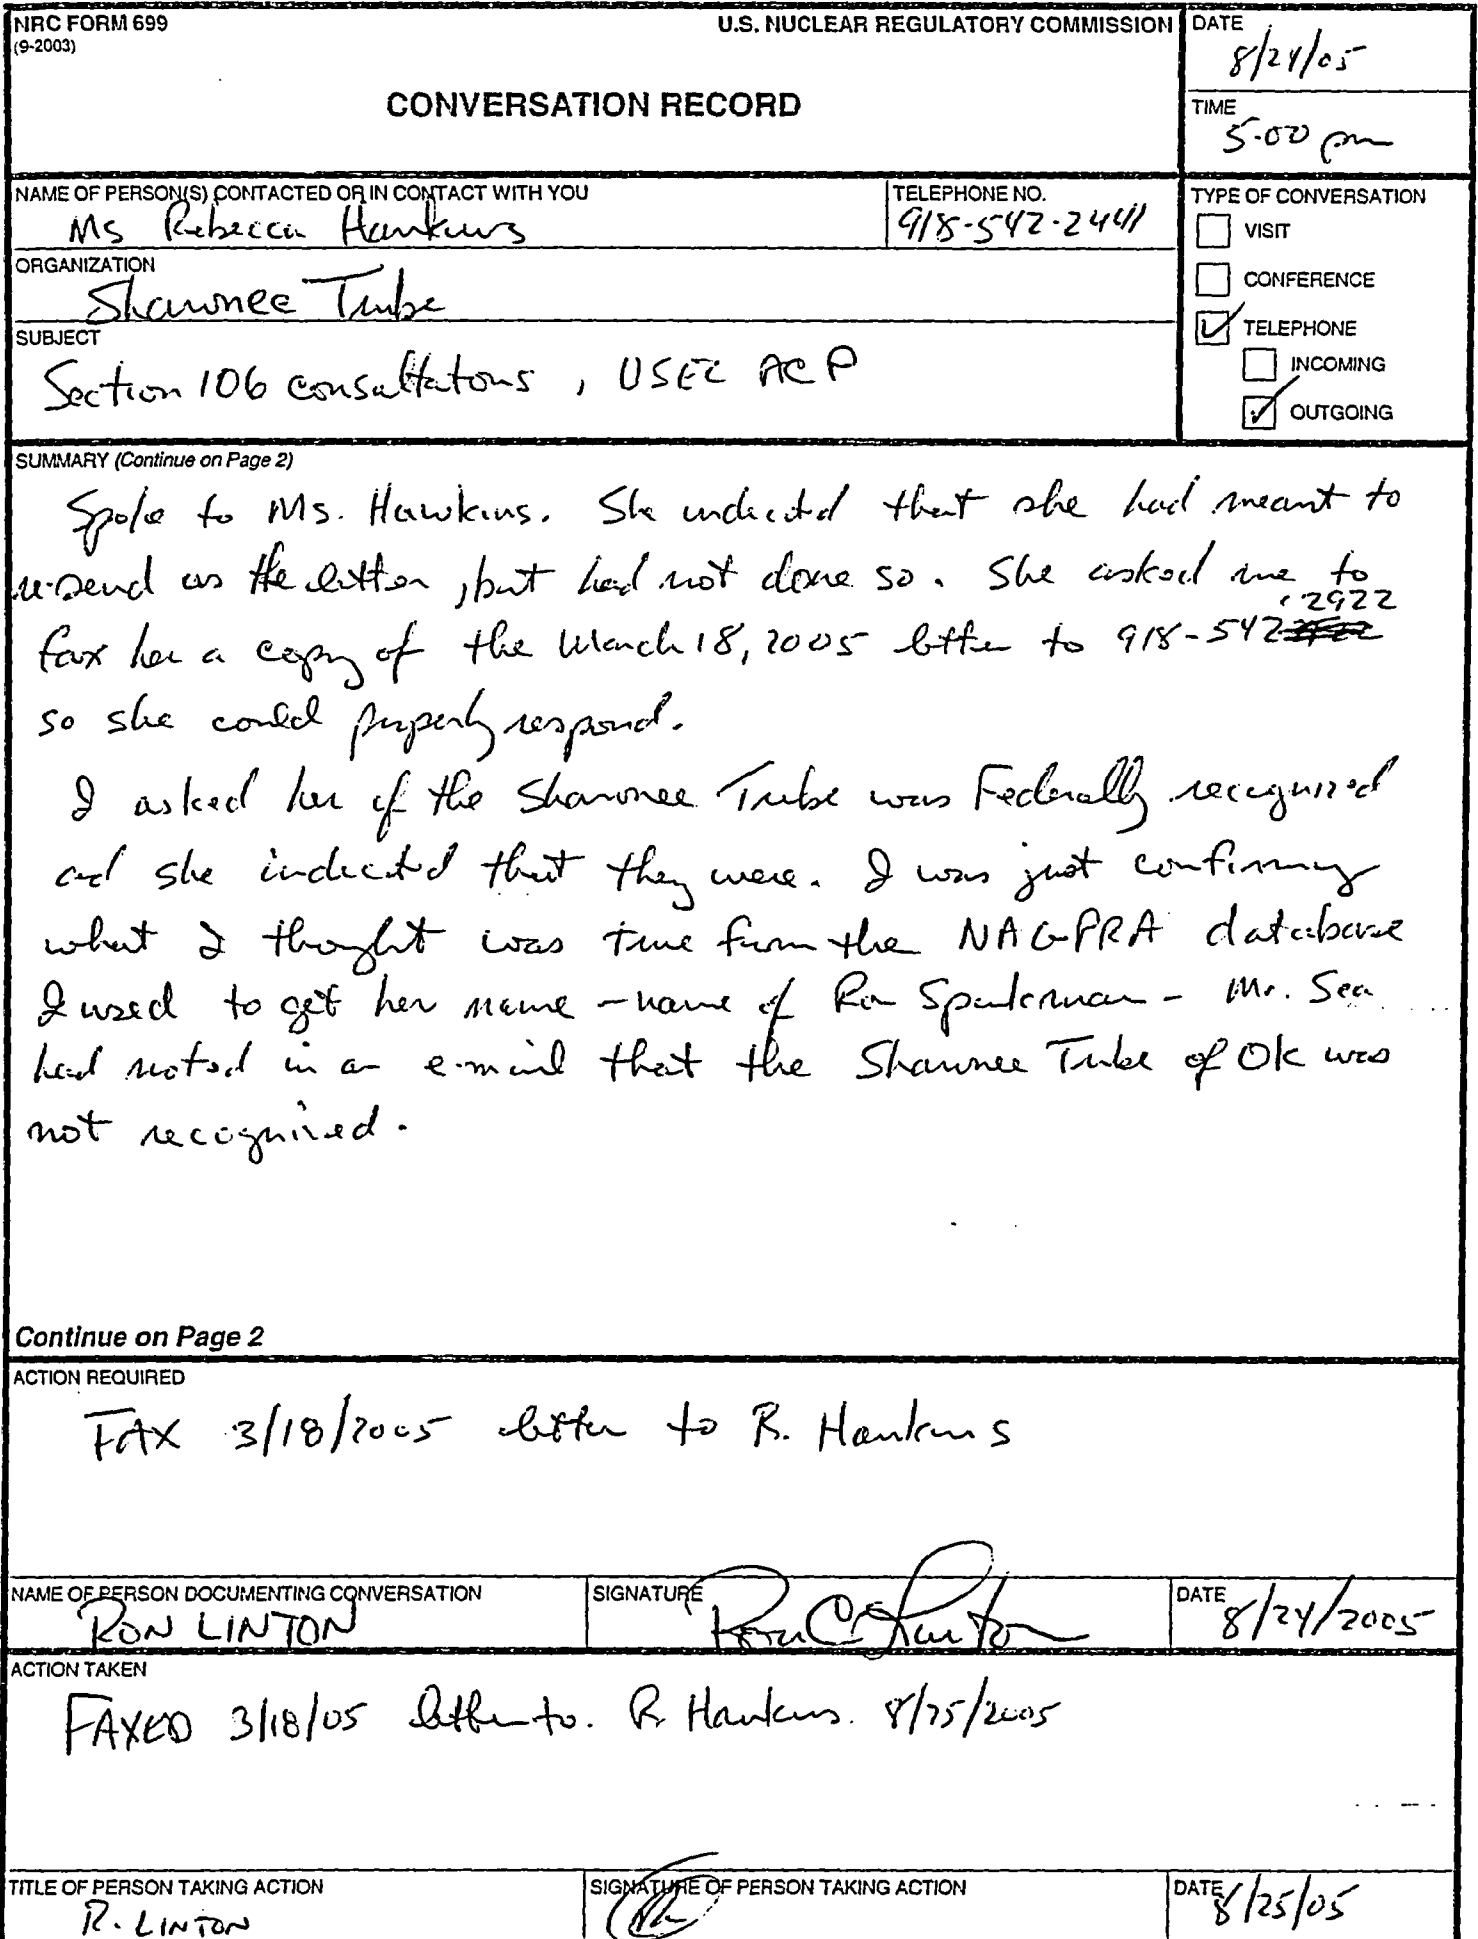 NRC FORM 699
(9-2003)
U.S. NUCLEAR REGULATORY COMMISSION
CONVERSATION RECORD
DATE
8/24/05
TIME
5:00 pm
NAME OF PERSON(S) CONTACTED OR IN CONTACT WITH YOU
Ms Rebecca Hawkins
TELEPHONE NO.
918-542-2441
TYPE OF CONVERSATION
VISIT
CONFERENCE
TELEPHONE
INCOMING
OUTGOING
ORGANIZATION
Shawnee Tribe
SUBJECT
Section 106 consultations, USEC ACP
SUMMARY (Continue on Page 2)
Spoke to Ms. Hawkins. She indicated that she had meant to
re-send us the letter, but had not done so. She asked me to
fax her a copy of the March 18, 2005 letter to 918-542-2922
so she could properly respond.
I asked her if the Shawnee Tribe was Federally recognized
and she indicated that they were. I was just confirming
what I thought was true from the NAGPRA database
I used to get her name - name of Ron Sparkman - Mr. Sea
had noted in an e-mail that the Shawnee Tribe of OK was
not recognized.
Continue on Page 2
ACTION REQUIRED
FAX 3/18/2005 letter to R. Hawkins
NAME OF PERSON DOCUMENTING CONVERSATION
RON LINTON
SIGNATURE
Ron C. Linton
DATE
8/24/2005
ACTION TAKEN
FAXED 3/18/05 letter to R. Hawkins. 8/25/2005
TITLE OF PERSON TAKING ACTION
R. LINTON
SIGNATURE OF PERSON TAKING ACTION
DATE
8/25/05